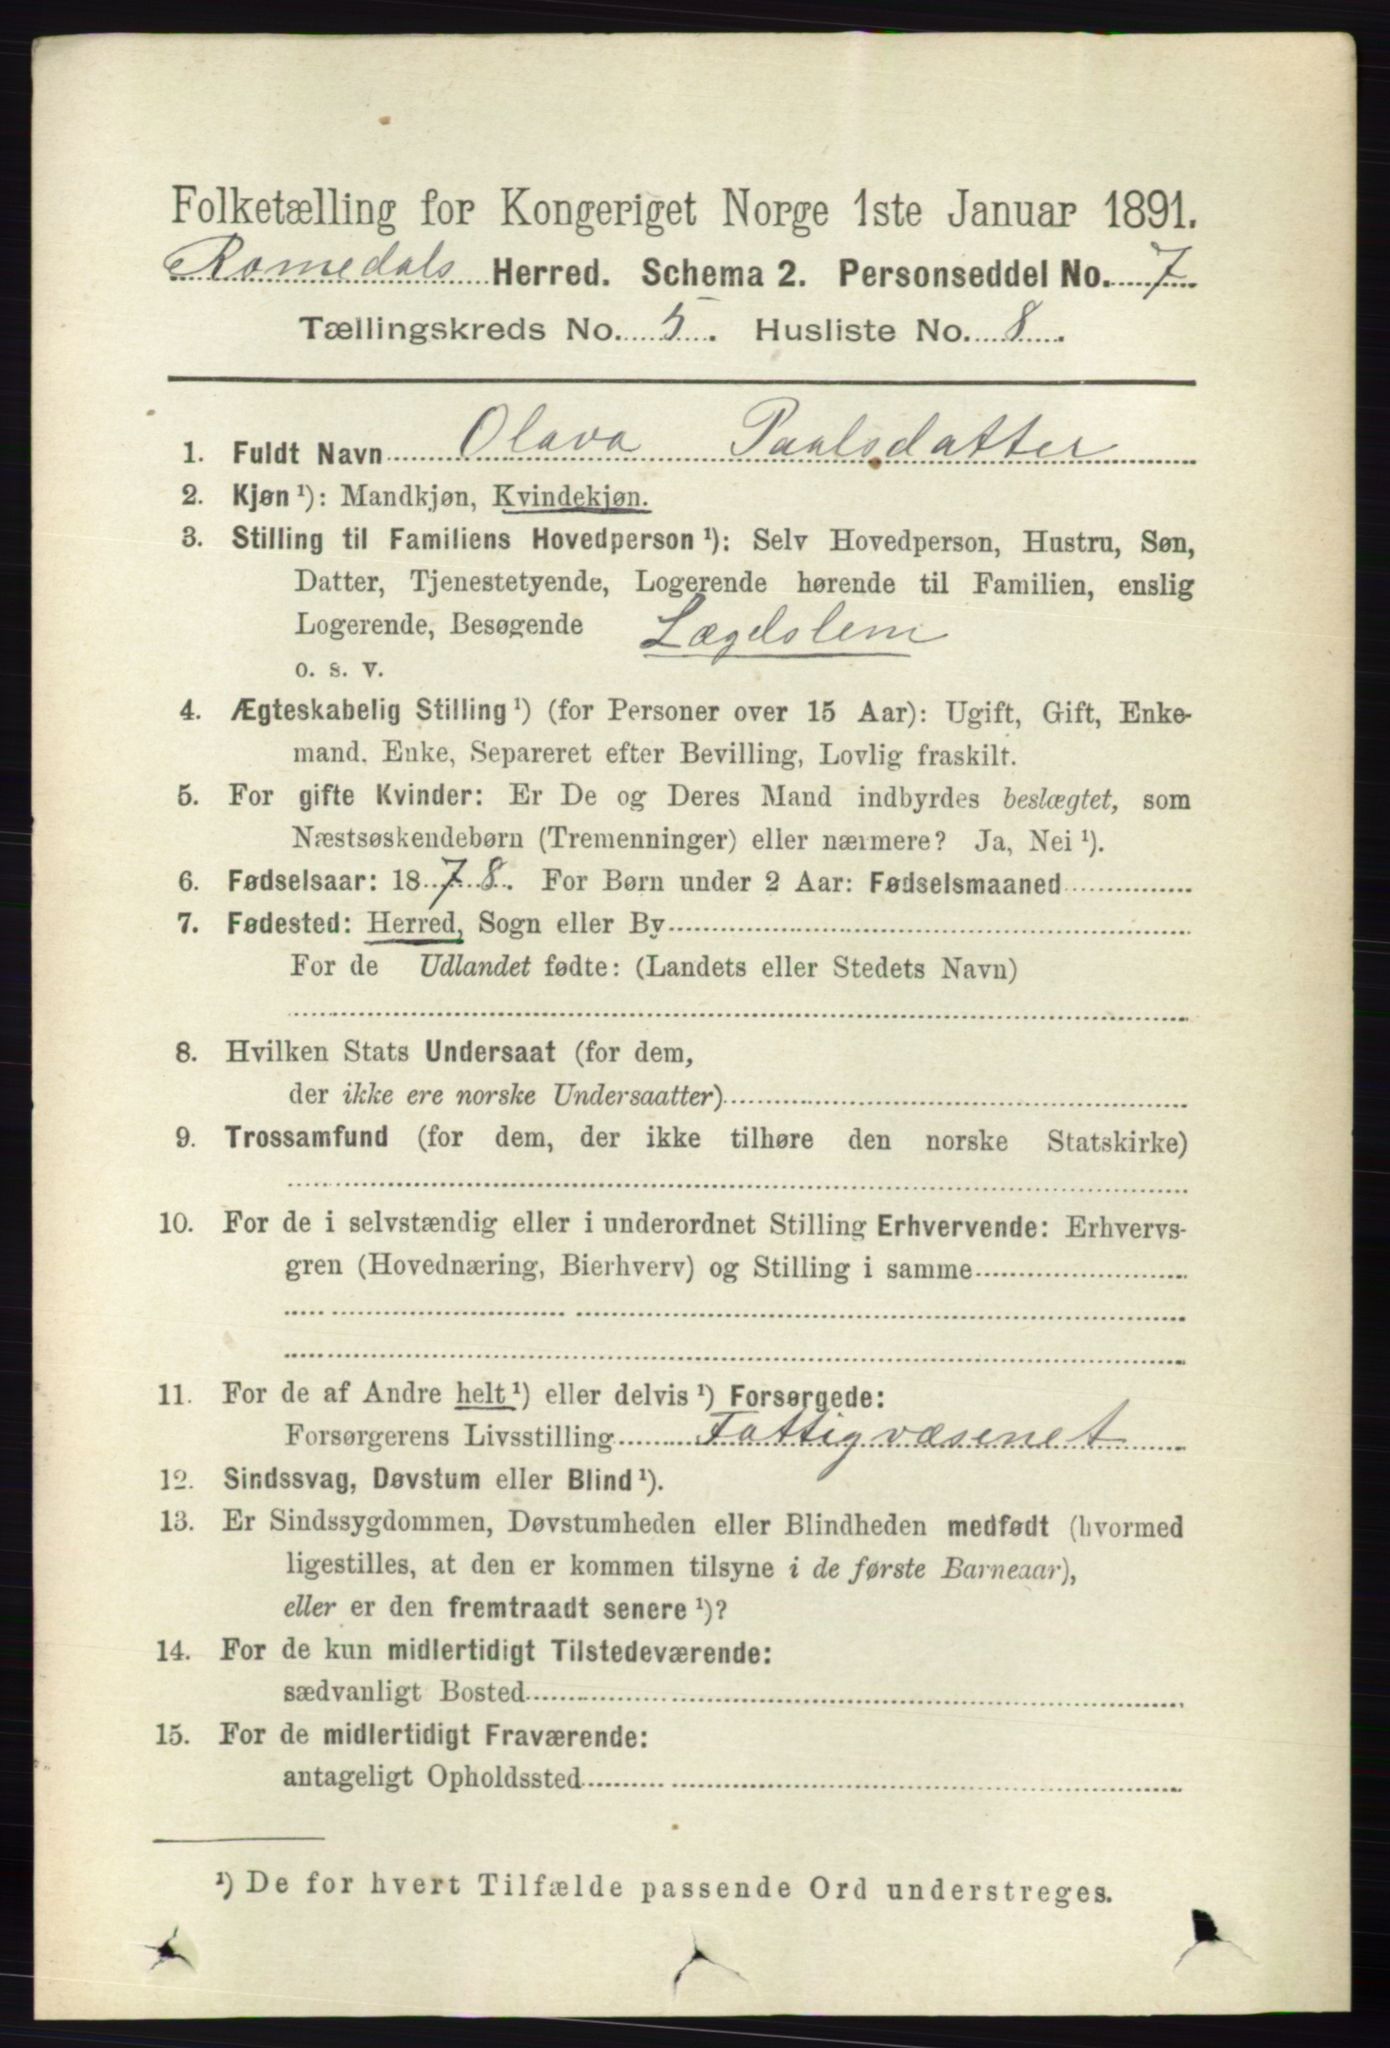 Folketælling for Kongeriget Norge 1ste Januar 1891.
Romedals Herred. Schema 2. Personseddel No. 7
Tællingskreds No. 5. Husliste No. 8.
1. Fuldt Navn Olava Paalsdatter
2. Kjøn ¹): Mandkjøn, Kvindekjøn.
3. Stilling til Familiens Hovedperson ¹): Selv Hovedperson, Hustru, Søn,
Datter, Tjenestetyende, Logerende hørende til Familien, enslig
Logerende, Besøgende Lægdslem
o. s. v.
4. Ægteskabelig Stilling ¹) (for Personer over 15 Aar): Ugift, Gift, Enke-
mand, Enke, Separeret efter Bevilling, Lovlig fraskilt.
5. For gifte Kvinder: Er De og Deres Mand indbyrdes beslægtet, som
Næstsøskendebørn (Tremenninger) eller nærmere? Ja, Nei ¹).
6. Fødselsaar: 1878. For Børn under 2 Aar: Fødselsmaaned
7. Fødested: Herred, Sogn eller By
For de Udlandet fødte: (Landets eller Stedets Navn)
8. Hvilken Stats Undersaat (for dem,
der ikke ere norske Undersaatter)
9. Trossamfund (for dem, der ikke tilhøre den norske Statskirke)
10. For de i selvstændig eller i underordnet Stilling Erhvervende: Erhvervs-
gren (Hovednæring, Bierhverv) og Stilling i samme
11. For de af Andre helt ¹) eller delvis ¹) Forsørgede:
Forsørgerens Livsstilling Fattigvæsenet
12. Sindssvag, Døvstum eller Blind ¹).
13. Er Sindssygdommen, Døvstumheden eller Blindheden medfødt (hvormed
ligestilles, at den er kommen tilsyne i de første Barneaar),
eller er den fremtraadt senere ¹)?
14. For de kun midlertidigt Tilstedeværende:
sædvanligt Bosted
15. For de midlertidigt Fraværende:
antageligt Opholdssted
¹) De for hvert Tilfælde passende Ord understreges.